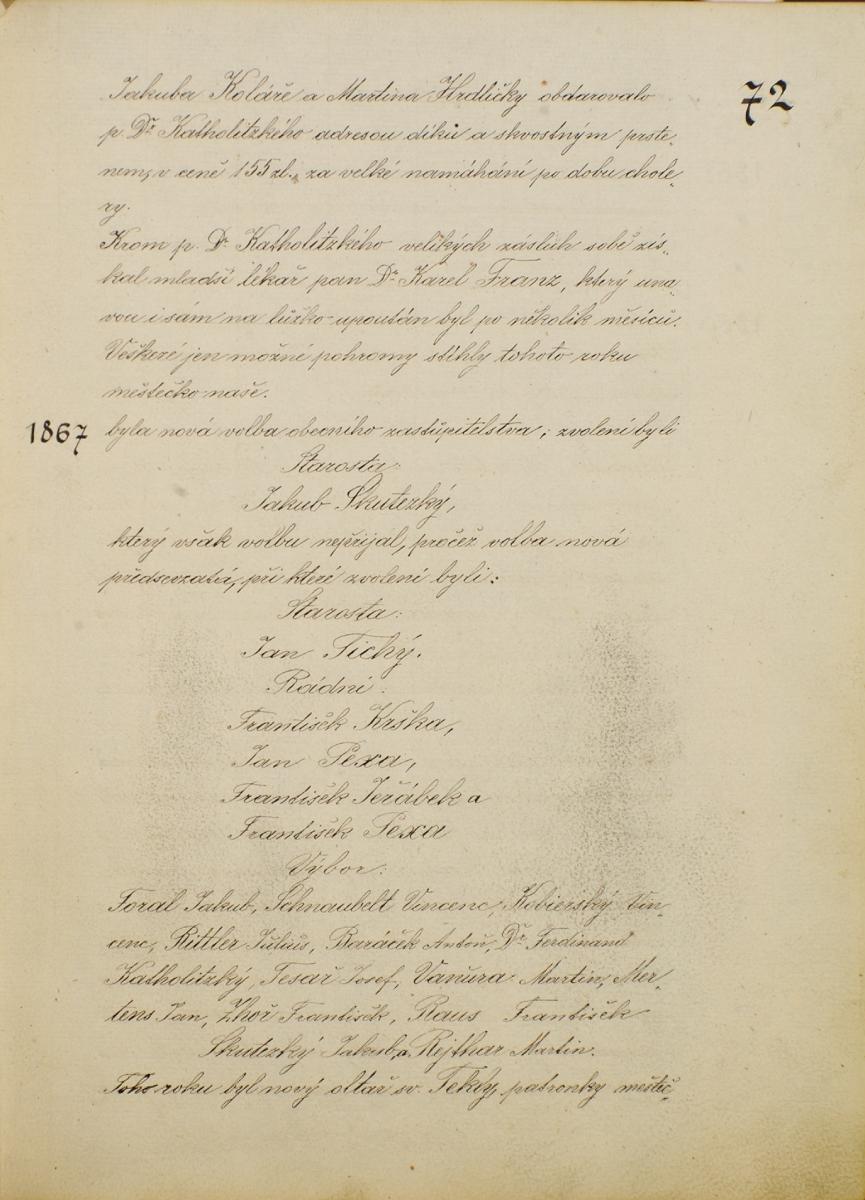 72
Jakuba Koláře a Martina Hrdličky obdarovalo
p. Dr. Katholitzkého adresou díků a skvostným prste„
nem, v ceně 155 zl., za velké namáhání po dobu chole„
ry.
Krom p. Dr. Katholitzkého velikých zásluh sobě zís„
kal mladší lékař pan Dr. Karel Franz, který una„
vou i sám na lůžko upoután byl po několik měsíců.
Veškeré jen možné pohromy stihly tohoto roku
městečko naše.
1867 byla nová volba obecního zastupitelstva; zvoleni byli
Starosta:
Jakub Skutezký,
který však volbu nepřijal, pročež volba nová
předsevzatá, při které zvoleni byli:
Starosta:
Jan Tichý.
Rádní:
František Krška,
Jan Pexa,
František Jeřábek a
František Pexa
Výbor:
Foral Jakub, Schnaubelt Vincenc, Kobierský Vin„
cenc, Rittler Julius, Baráček Anton, Dr. Ferdinand
Katholitzký, Tesař Josef, Vaňura Martin, Mer„
tens Jan, Zhoř František, Raus František
Skutezký Jakub, a Rejthar Martin.
Toho roku byl nový oltář sv. Tekly, patronky městeč„